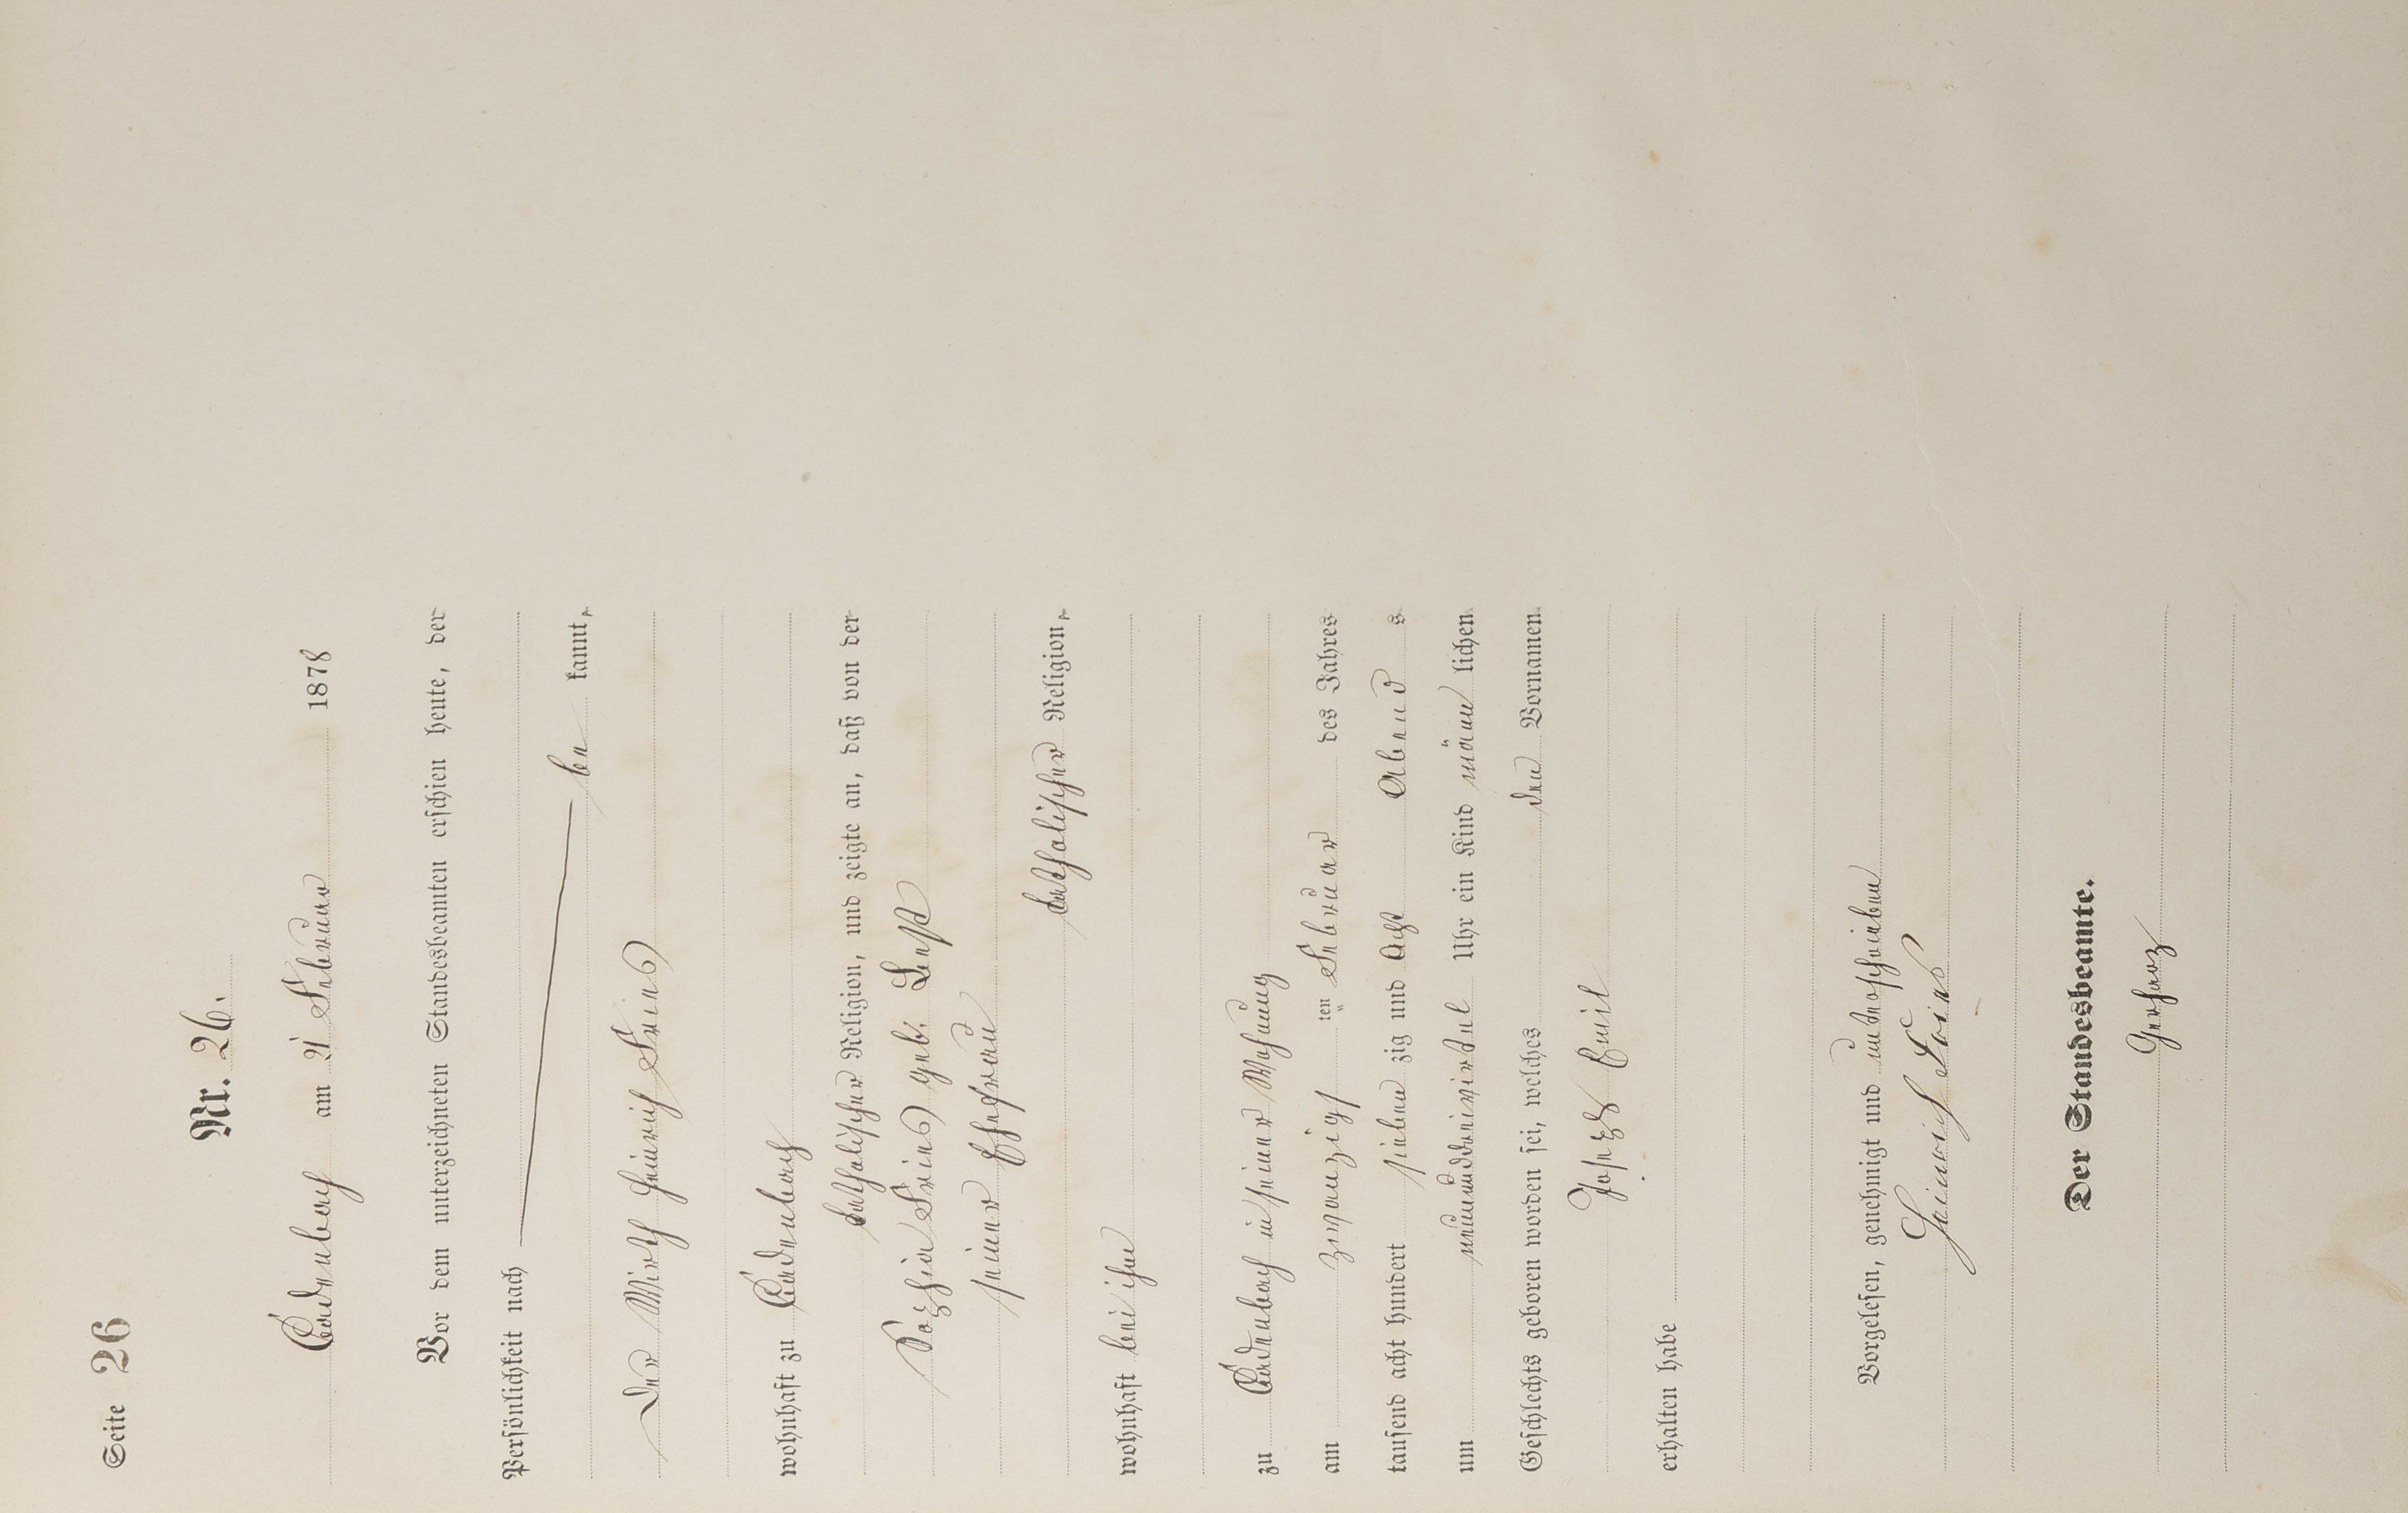 Seite 26
Nr. 26.
Cadenbach am 21 Februar 1878
Vor dem unterzeichneten Standesbeamten erschien heute, der
Persönlichkeit nach
be kannt,
Der Wirth Heinrich Freins
wohnhaft zu Cadenbach
katholischer Religion, und zeigte an, daß von der
Sophia Freins geb:
seiner Ehefrau
katholischer Religion,
wohnhaft bei ihm
zu Cadenbach in seiner Wohnung
am zwanzigs ten Februar des Jahres
tausend acht hundert sieben zig und acht Abend s
um Uhr ein Kind männ lichen
Geschlechts geboren worden sei, welches den Vornamen
Joseph Emil
erhalten habe
Vorgelesen, genehmigt und unterschrieben
Heinrich Freins
Der Standesbeamte.
Gerharz